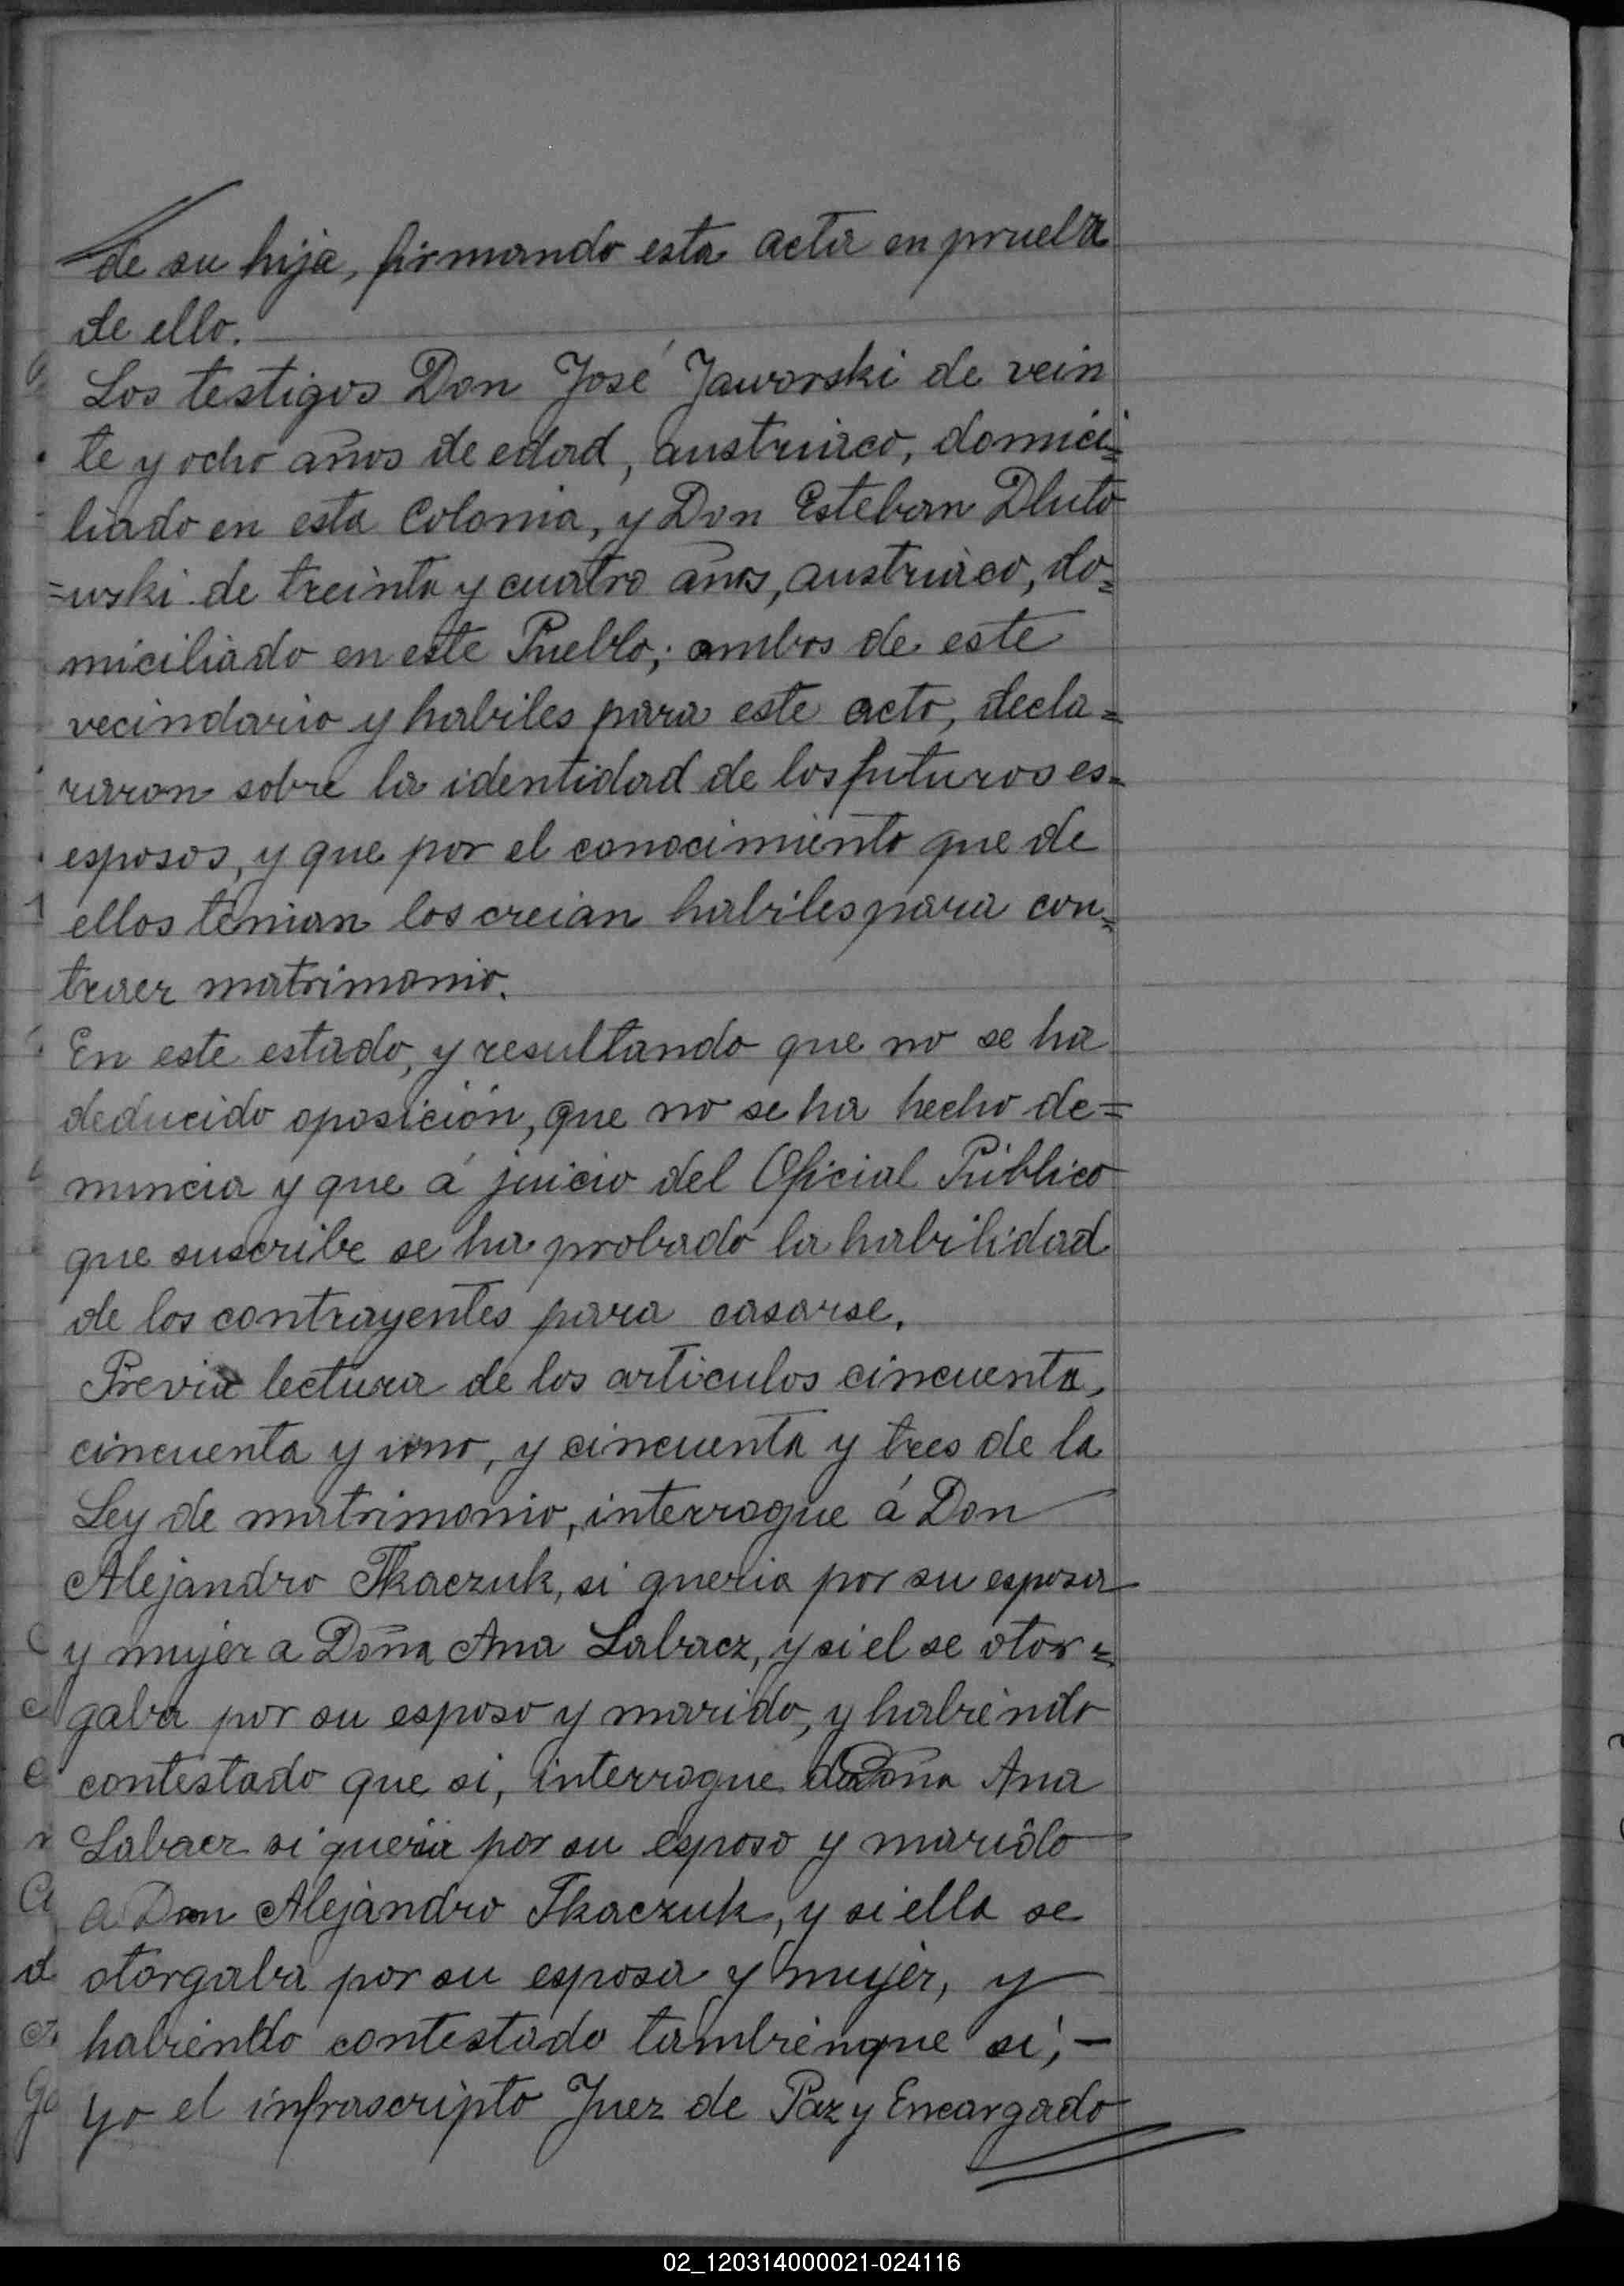 de su hija, firmando esta acta en prueba
de ello.
Los testigos Don José Jaworski de vein
te y ocho años de edad, austriaco, domici=
liado en esta Colonia, y Don Esteban Dluto
=wski de treinta y cuatro años, austriaco, do=
miciliado en este Pueblo; ambos de este
vecindario y habiles para este acto, decla=
raron sobre la identidad de los futuros es=
esposos, y que por el conocimiento que de
ellos tenian los creian habiles para con=
traer matrimonio.
En este estado, y resultando que no se ha
deducido oposición, que no se ha hecho de=
nuncia y que á juicio del Oficial Público
que suscribe se ha probado la habilidad
de los contrayentes para casarse.
Previa lectura de los articulos cincuenta,
cincuenta y uno, y cincuenta y tres de la
Ley de matrimonio, interrogue á Don
Alejandro Tkaczuk, si queria por su esposa
y mujer a Doña Ana Labacz, y si el se otor=
gaba por su esposo y marido, y habiendo
contestado que si, interrogue Doña Ana
Labacz si queria por su esposo y marido
a Don Alejandro Tkaczuk, y si ella se
otorgaba por su esposa y mujer, y
habiendo contestado tambien que si; —
yo el infrascripto Juez de Paz y Encargado
02_120314000021-024116